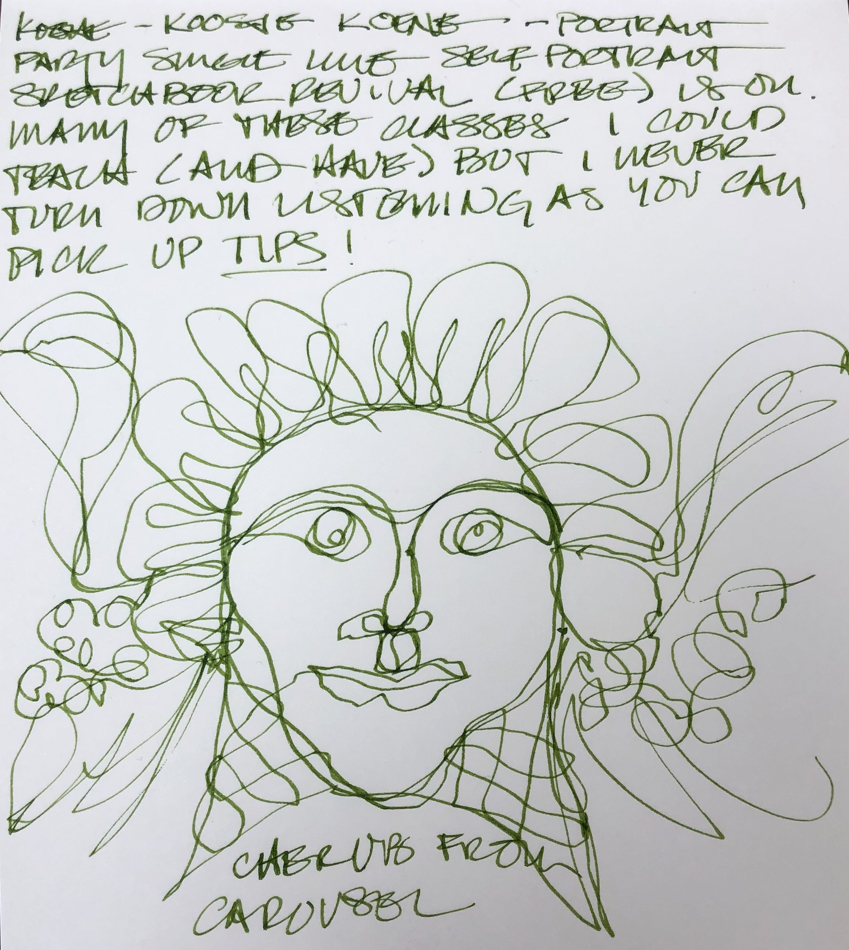 KOOSJE KOENE - PORTRAIT
PARTY SINGLE LINE SELF PORTRAIT
SKETCHBOOK REVIVAL (FREE) IS ON.
MANY OF THESE CLASSES I COULD
TEACH (AND HAVE) BUT I NEVER
TURN DOWN LISTENING AS YOU CAN
PICK UP TIPS!
CHERUB FROM
CAROUSEL